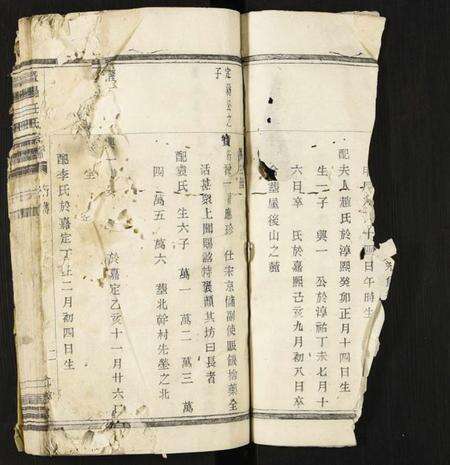 日午時生
配夫人趙氏於淳熙癸卯正月十四日生
生一子 興一 公於淳祐丁未七月十
六日卒 氏於嘉熙己亥九月初八日卒
蓋屋後山之麓
定 公之
子
應珍 仕宋京儲副使賑饑捨藥全
活甚衆上聞賜詔特褒額其坊曰長者
配袁氏 生六子 萬一 萬二 萬三 萬
四 萬五 萬六 葬北幹村先塋之北
於嘉定乙亥十一月廿六
生
配李氏於嘉定丁丑二月初四日生